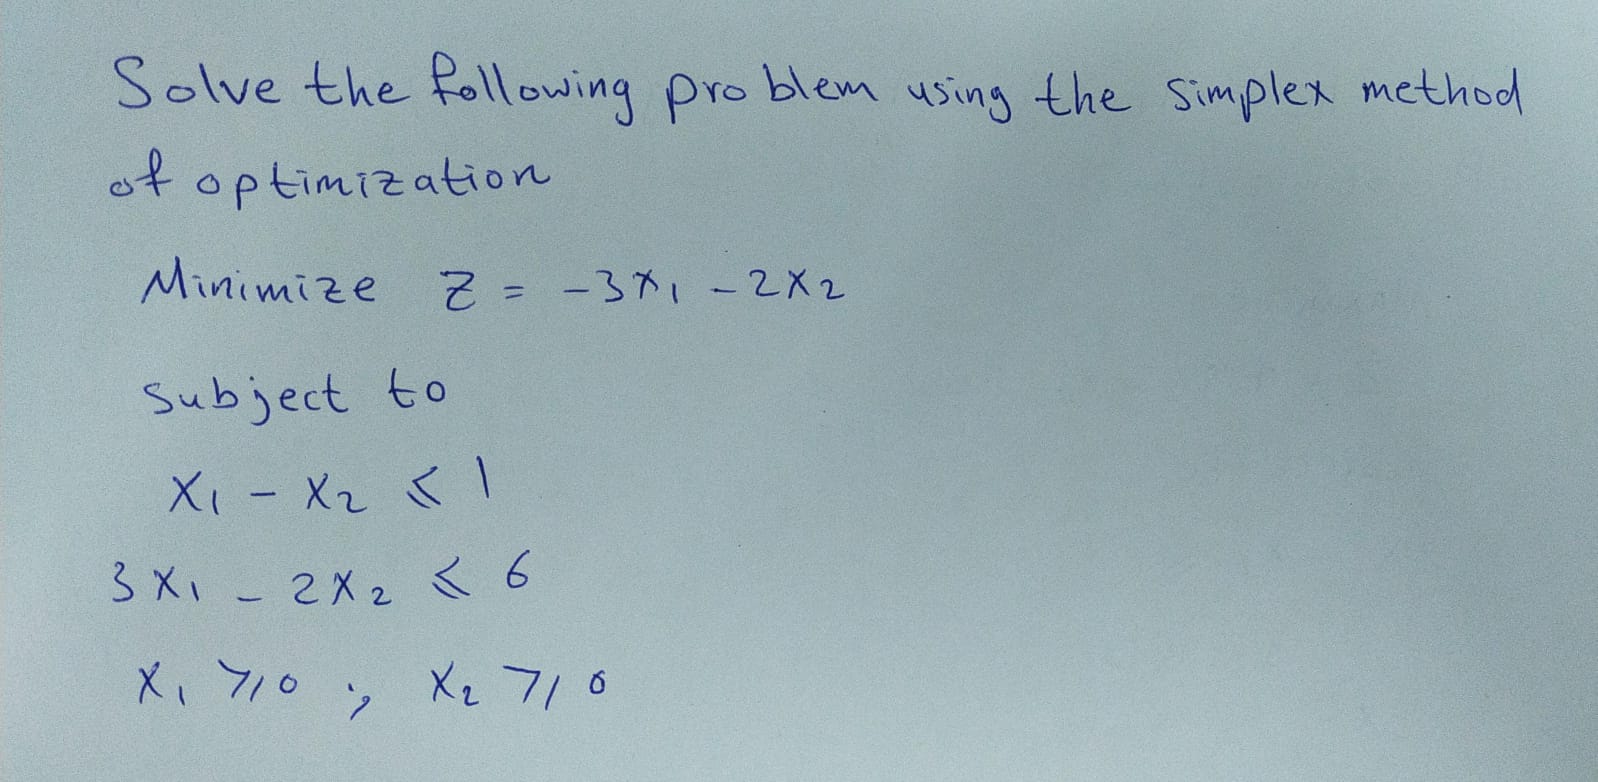 Solve the following problem using the simplex method
of optimization
Minimize Z = -3X₁ - 2X₂
Subject to
X₁ - X₂ ⩽ 1
3X₁ - 2X₂ ⩽ 6
X₁ ⩾ 0 ; X₂ ⩾ 0